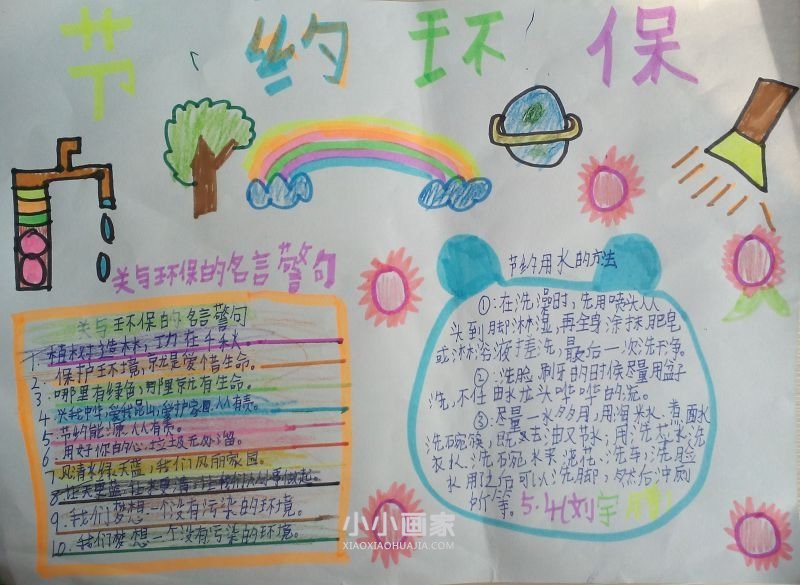 节约环保
关与环保的名言警句
关与环保的名言警句
1. 植树造林，功在千秋。
2. 保护环境，就是爱惜生命。
3. 哪里有绿色，那里就有生命。
4. 爱护家园 人人有责。
5. 节约能源人人有责。
6. 用好你的心，垃圾无处溜。
7 风清水绿天蓝，我们
8
9. 我们梦想一个没有污染的环境。
10. 我们梦想一个没有污染的环境。
节约用水的方法
①：在洗澡时，先用喷头从
头到脚淋湿，再全身涂抹肥皂
或淋浴液搓洗，最后一次洗干净。
②：洗脸刷牙的时候尽量用盆子
洗，不任由水龙头哗哗的流。
③：尽量一水多用，用淘米水、煮面水
洗碗筷，既又去油又节水；用洗菜水、洗
衣水、洗碗水来浇花、洗车；洗脸
水用过后可以洗脚，然后冲厕
所等。5.4刘宇
小小画家
XIAOXIAOHUAJIA.COM